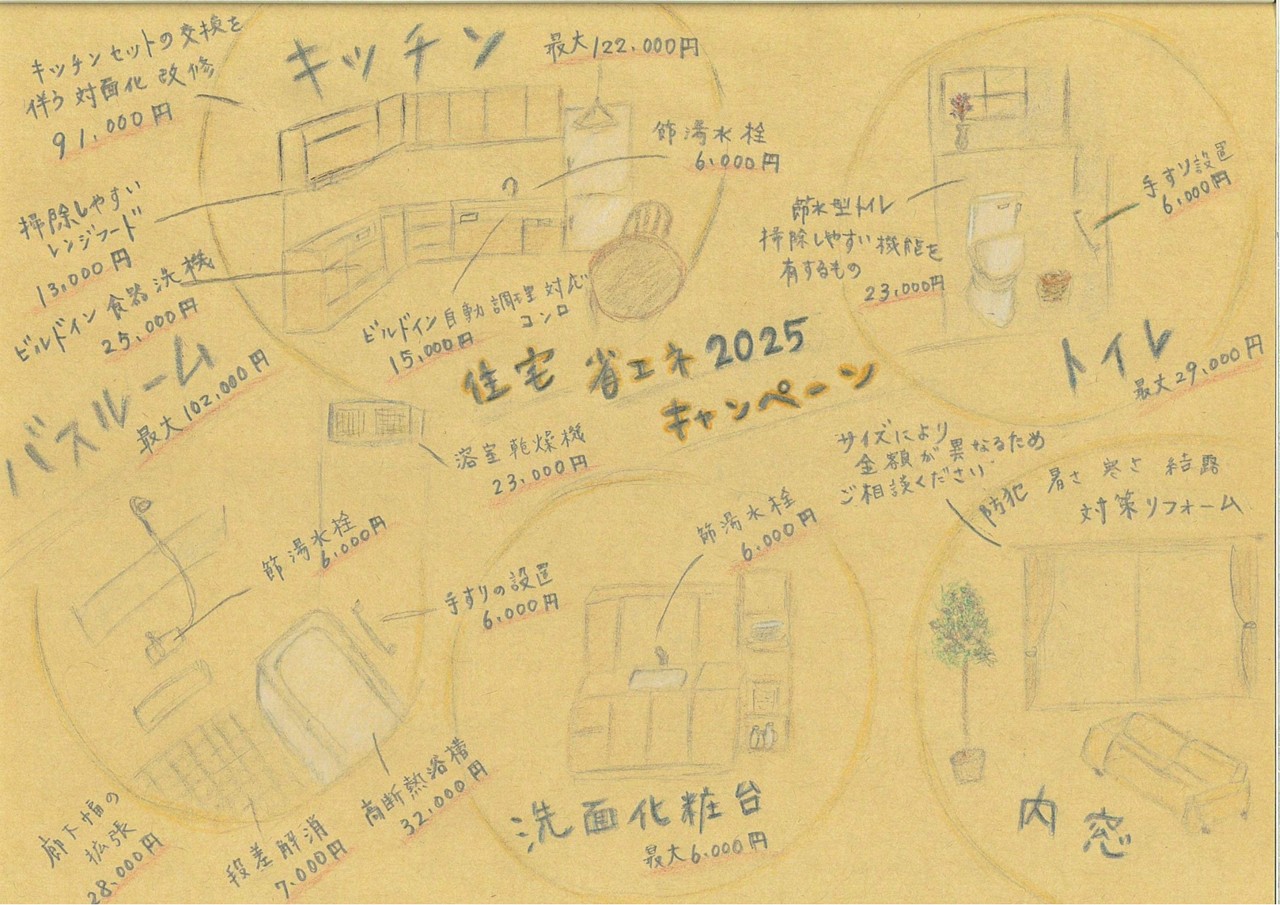 キッチン
最大122,000円
キッチンセットの交換を
伴う対面化改修
91,000円
掃除しやすい
レンジフード
13,000円
ビルドイン食器洗機
25,000円
節湯水栓
6,000円
ビルドイン自動調理対応
コンロ
15,000円
節水型トイレ
掃除しやすい機能を
有するもの
23,000円
手すり設置
6,000円
トイレ
最大29,000円
住宅省エネ2025
キャンペーン
バスルーム
最大102,000円
浴室乾燥機
23,000円
節湯水栓
6,000円
手すりの設置
6,000円
高断熱浴槽
32,000円
段差解消
7,000円
廊下幅の
拡張
28,000円
節湯水栓
6,000円
洗面化粧台
最大6,000円
サイズにより
金額が異なるため
ご相談ください
防犯 暑さ 寒さ 結露
対策リフォーム
内窓